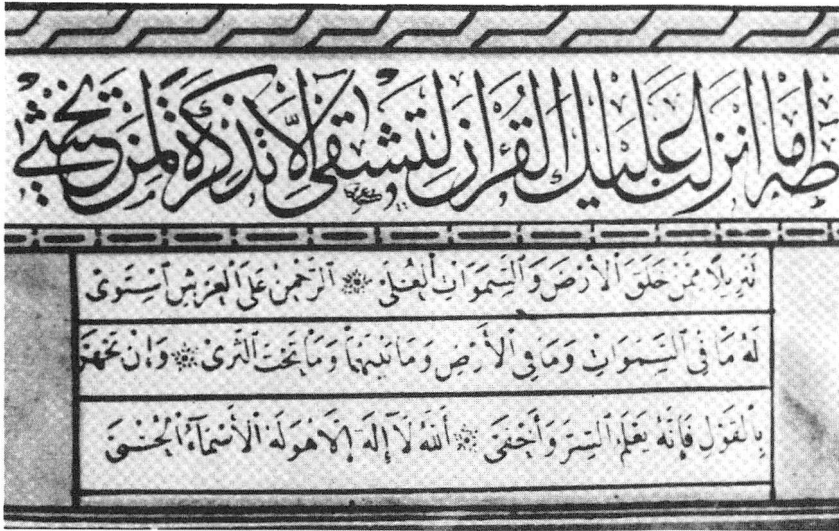 طه ما أنزلنا عليك القرآن لتشقى إلا تذكرة لمن يخشى
تَنزِيلًا مِمَّنْ خَلَقَ ٱلْأَرْضَ وَٱلسَّمٰوَاتِ ٱلْعُلَى ۞ ٱلرَّحْمٰنُ عَلَى ٱلْعَرْشِ ٱسْتَوَىٰ
لَهُ مَا فِي ٱلسَّمٰوَاتِ وَمَا فِي ٱلْأَرْضِ وَمَا بَيْنَهُمَا وَمَا تَحْتَ ٱلثَّرَىٰ ۞ وَإِنْ تَجْهَرْ
بِٱلْقَوْلِ فَإِنَّهُ يَعْلَمُ ٱلسِّرَّ وَأَخْفَى ۞ ٱللّٰهُ لَا إِلٰهَ إِلَّا هُوَ لَهُ ٱلْأَسْمَآءُ ٱلْحُسْنَىٰ